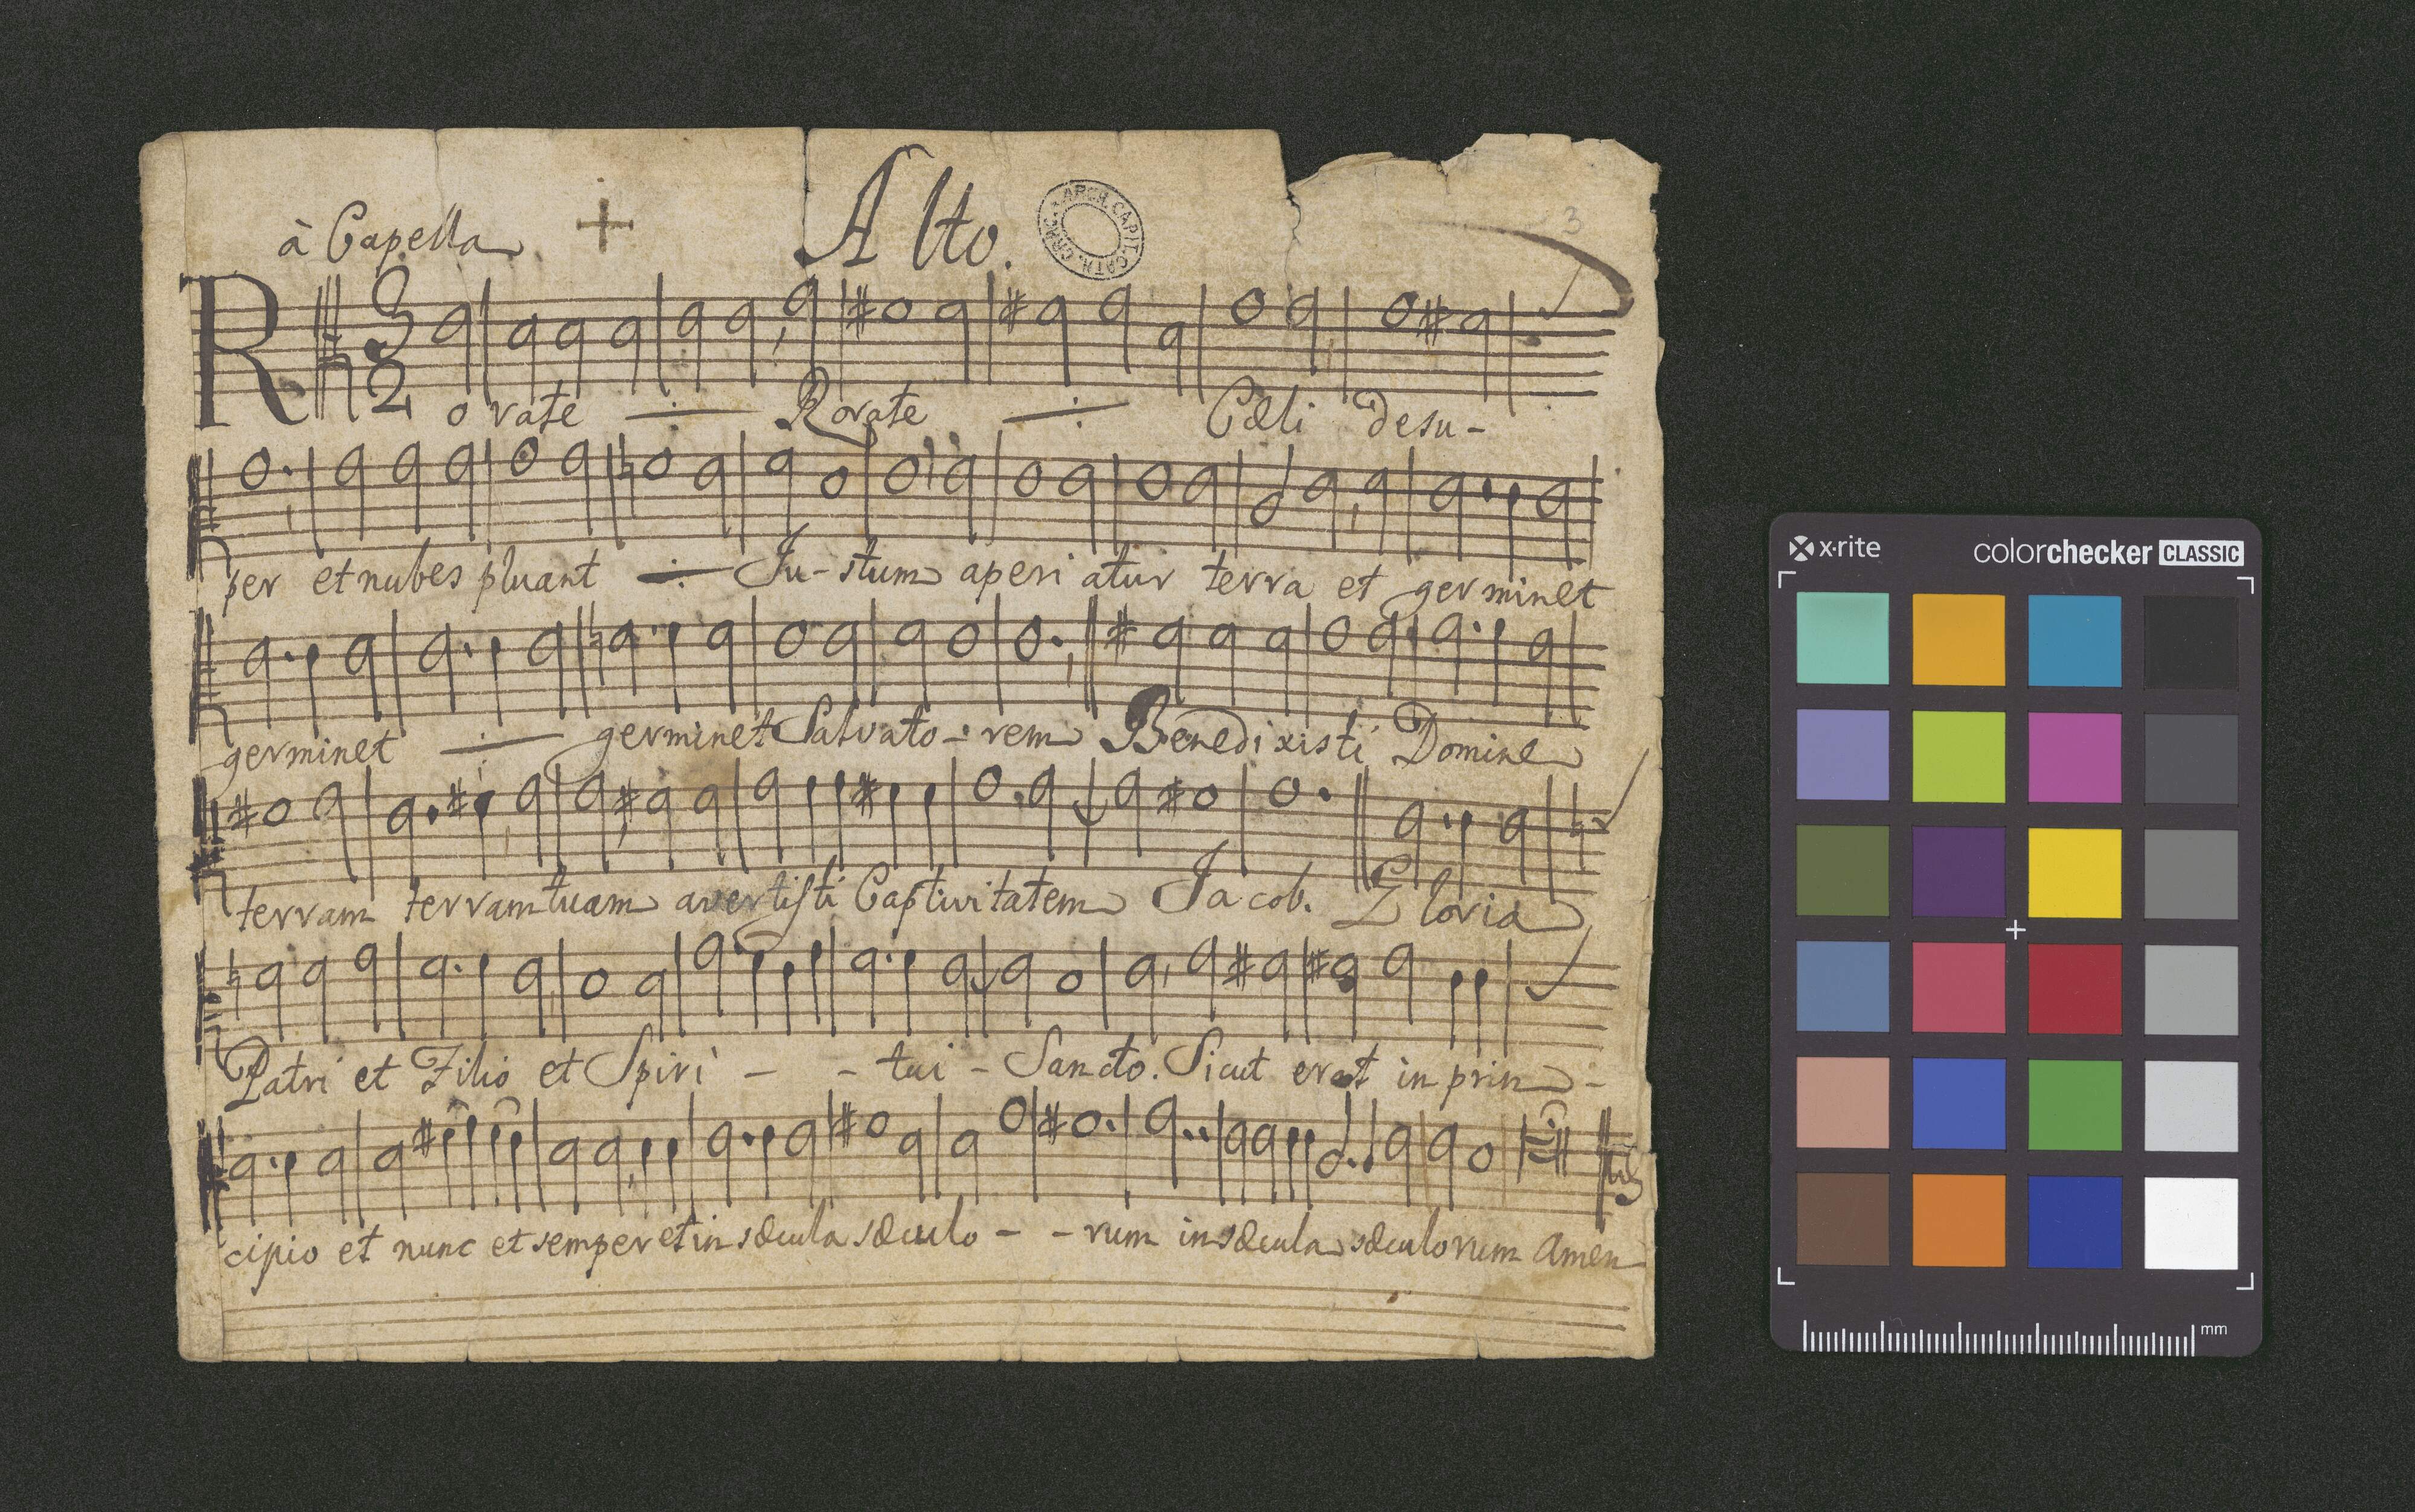 à Capella + Alto. 3
ARCH. CAPIT. CATH. CRAC.
3
2
Rorate ÷ Rorate ÷ Cæli desu-
per et nubes pluant ÷ Ju-stum aperi atur terra et germinet
germinet ÷ germinet Salvato-rem Benedixisti Domine
terram terram tuam avertisti Captivitatem Jacob. Gloria
Patri et Filio et Spiri - - tui - Sancto. Sicut erat in prin -
cipio et nunc et semper et in sæcula sæculo - - rum in sæcula sæculorum Amen
x·rite colorchecker CLASSIC
mm